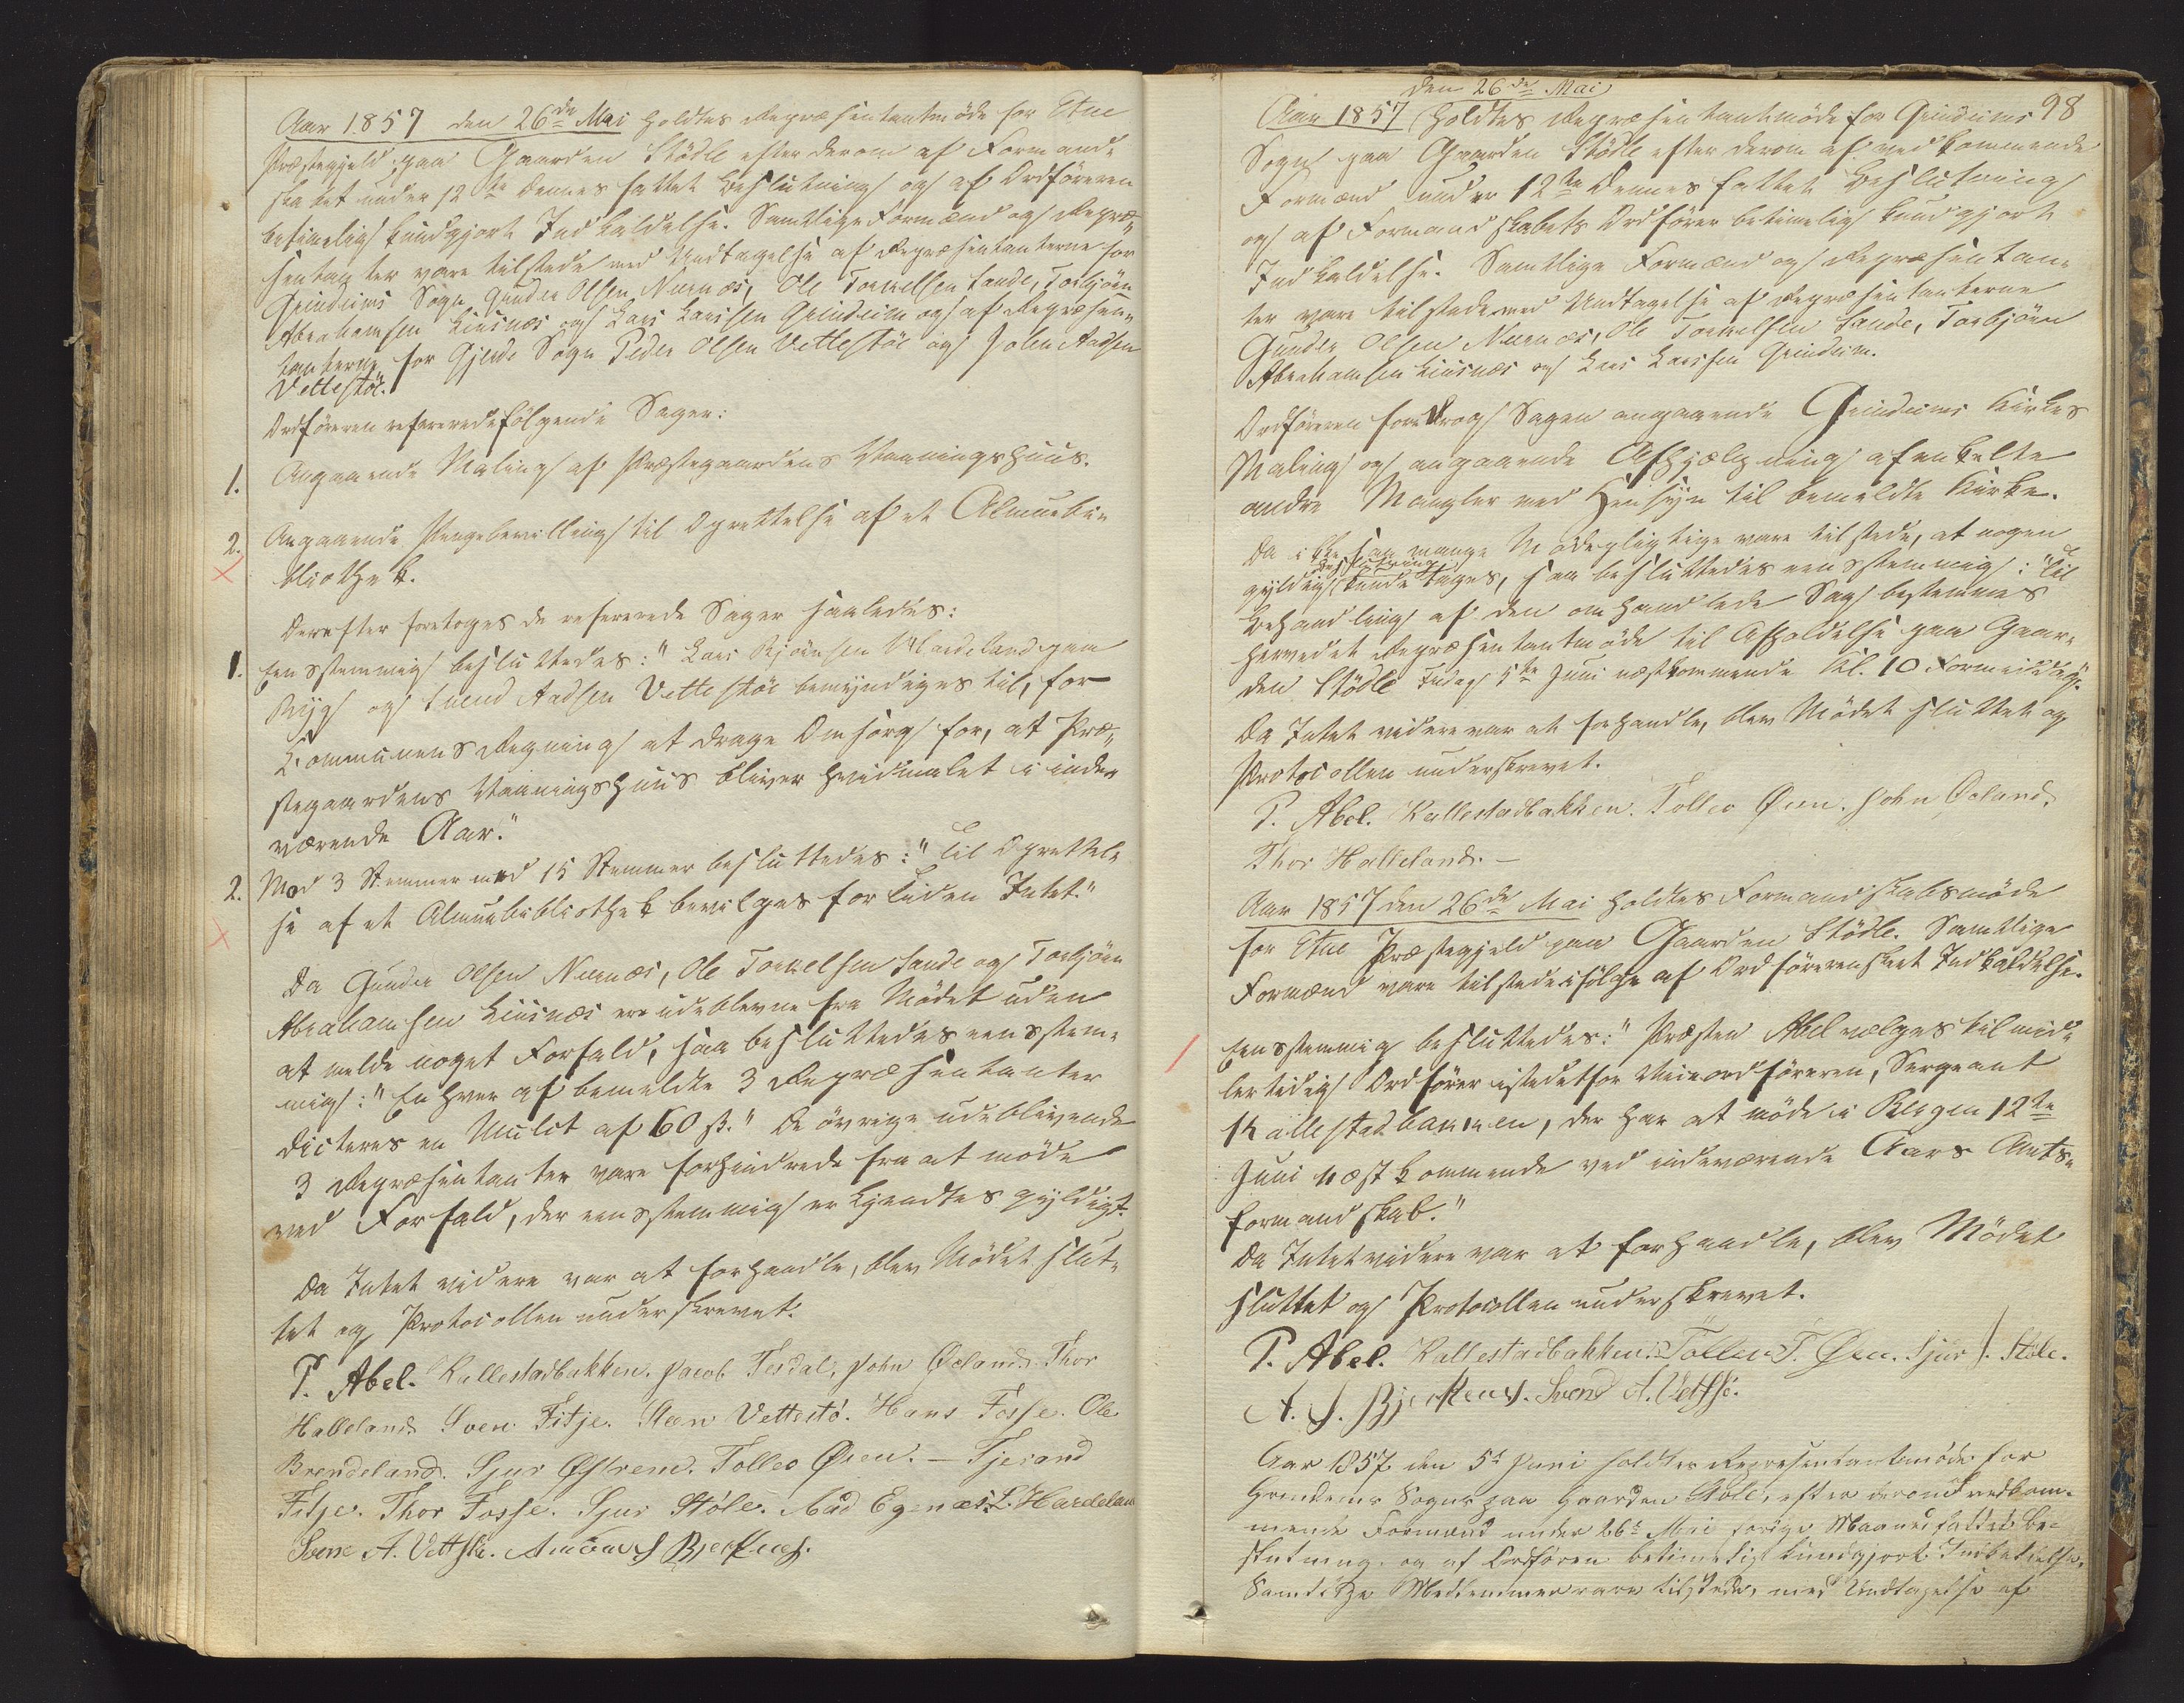 Aar 1857 den 26de Mai holdtes Repræsentantmöde for Etne
Præstegjeld paa Gaarden Stödle efter derom af Formand-
skabet under 12te dennes fattet Beslutning og af Ordföreren
betimelig kundgjort Indkaldelse. Samtlige Formænd og Repræ-
sentanter vare tilstede med Undtagelse af Repræsentanterne for
Grindeims Sogn Gunder Olsen Nærnæs, Ole Torkelsen Sande, Torbjörn
Abrahamsen Liusnæs og Lars Larssen Grindeim og af Repræsen-
tanterne for Gjerde Sogn Peder Olsen Vettestöe og John Aadsen
Vettestöe.
Ordföreren refererede fölgende Sager:
1. Angaaende Maling af Præstegaardens Vaaningshuus.
2. Angaaende Pengebevilling til Oprettelse af et Almuebi-
bliothek.
Derefter foretoges de refererede Sager saaledes:
1. Eensstemmig besluttedes: "Lars Björnsen Hardeland paa
Ryg og Svend Aadsen Vettestöe bemyndiges til, for
Kommunens Regning at drage Omsorg for, at Præ-
stegaardens Vaaningshuus bliver hvidmalet i inde-
værende Aar."
2. Mod 3 Stemmer med 15 Stemmer besluttedes: "Til Oprettel-
se af et Almuebibliothek bevilges for Tiden Intet."
Da Gunder Olsen Nærnæs, Ole Torkelsen Sande og Torbjörn
Abrahamsen Liusnæs ere udeblevne fra Mödet uden
at melde noget Forfald, saa besluttedes eensstem-
mig: "Enhver af bemeldte 3 Repræsentanter
dicteres en Mulct af 60 ß." De övrige udeblivende
3 Repræsentanter vare forhindrede fra at möde
ved Forfald, der eensstemmig erkjendtes gyldigt.
Da Intet videre var at forhandle, blev Mödet slut-
tet og Protocollen underskrevet.
P. Abel. Kallestadbakken. Jacob Tesdal. John Øeland. Thor
Halleland. Sven Fitje. Steen Vettestö. Hans Fosse. Ole
Brendeland. Sjur Østrem. Tolleo Øien. – Tjerand
Fitje. Thor Fosse. Sjur Støle. Aad Egenæs. L. Hardeland
Svene A. Vettstö.
98
den 26de Mai
Aar 1857 holdtes Repræsentantmöde for Grindeims
Sogn paa Gaarden Stödle efter derom af vedkommende
Formænd under 12te Dennes fattet Beslutning
og af Formandskabets Ordförer betimelig kundgjort
Indkaldelse. Samtlige Formænd og Repræsentan-
ter vare tilstede med Undtagelse af Repræsentanterne
Gunder Olsen Nærnæs, Ole Torkelsen Sande, Torbjörn
Abrahamsen Liusnæs og Lars Larssen Grindeim.
Ordföreren foredrog Sagen angaaende Grindeims Kirkes
Maling og angaaende Afhjælpning af enkelte
andre Mangler med Hensyn til bemeldte Kirke.
Da ikke saa mange Mödepligtige vare tilstede, at nogen
Beslutning
gyldig kunde tages, saa besluttedes eensstemmig: "Til
Behandling af den omhandlede Sag bestemmes
herved et Repræsentantmöde til Afholdelse paa Gaar-
den Stödle Fredag 5te Juni næstkommende Kl. 10 Formiddag."
Da Intet videre var at forhandle, blev Mödet sluttet og
Protocollen underskrevet.
P. Abel. Kallestadbakken. Tolleo Øien. John Øeland.
Thor Halleland. –
Aar 1857 den 26de Mai holdtes Formandskabsmöde
for Etne Præstegjeld paa Gaarden Stödle. Samtlige
Formænd vare tilstede ifölge af Ordföreren skeet Indkaldelse.
Eensstemmig besluttedes: "Præsten Abel vælges til mid-
lertidig Ordförer istedetfor Viceordföreren, Sergeant
Kallestadbakken, der har at möde i Bergen 12te
Juni næstkommende ved indeværende Aars Amts-
formandskab."
Da Intet videre var at forhandle, blev Mödet
sluttet og Protocollen underskrevet.
P. Abel. Kallestadbakken. Tolleu T. Øien. Sjur J. Støle.
Svend A. Vettstö.
Aar 1857 den 5te Juni holdtes Repræsentantmöde for
Grindeims Sogn paa Gaarden Støle, efter derom af vedkom-
mende Formænd under 26de Mai forige Maaned fattet Be-
slutning og af Ordføren betimeligt kundgjort Indkaldelse.
Samtlige Medlemmer vare tilstede, med Undtagelse af